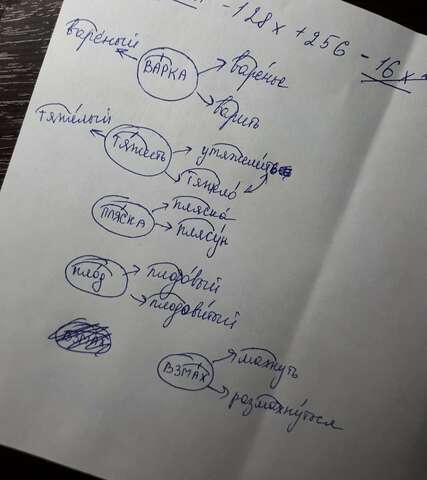 -128x + 256 - 16x
варёный
ВАРКА
варенье
варить
тяжёлый
ТЯЖЕСТЬ
утяжелить
тяжело
ПЛЯСКА
пляска
плясун
ПЛОД
плодовый
плодовитый
ВЗМАХ
махнуть
размахнуться